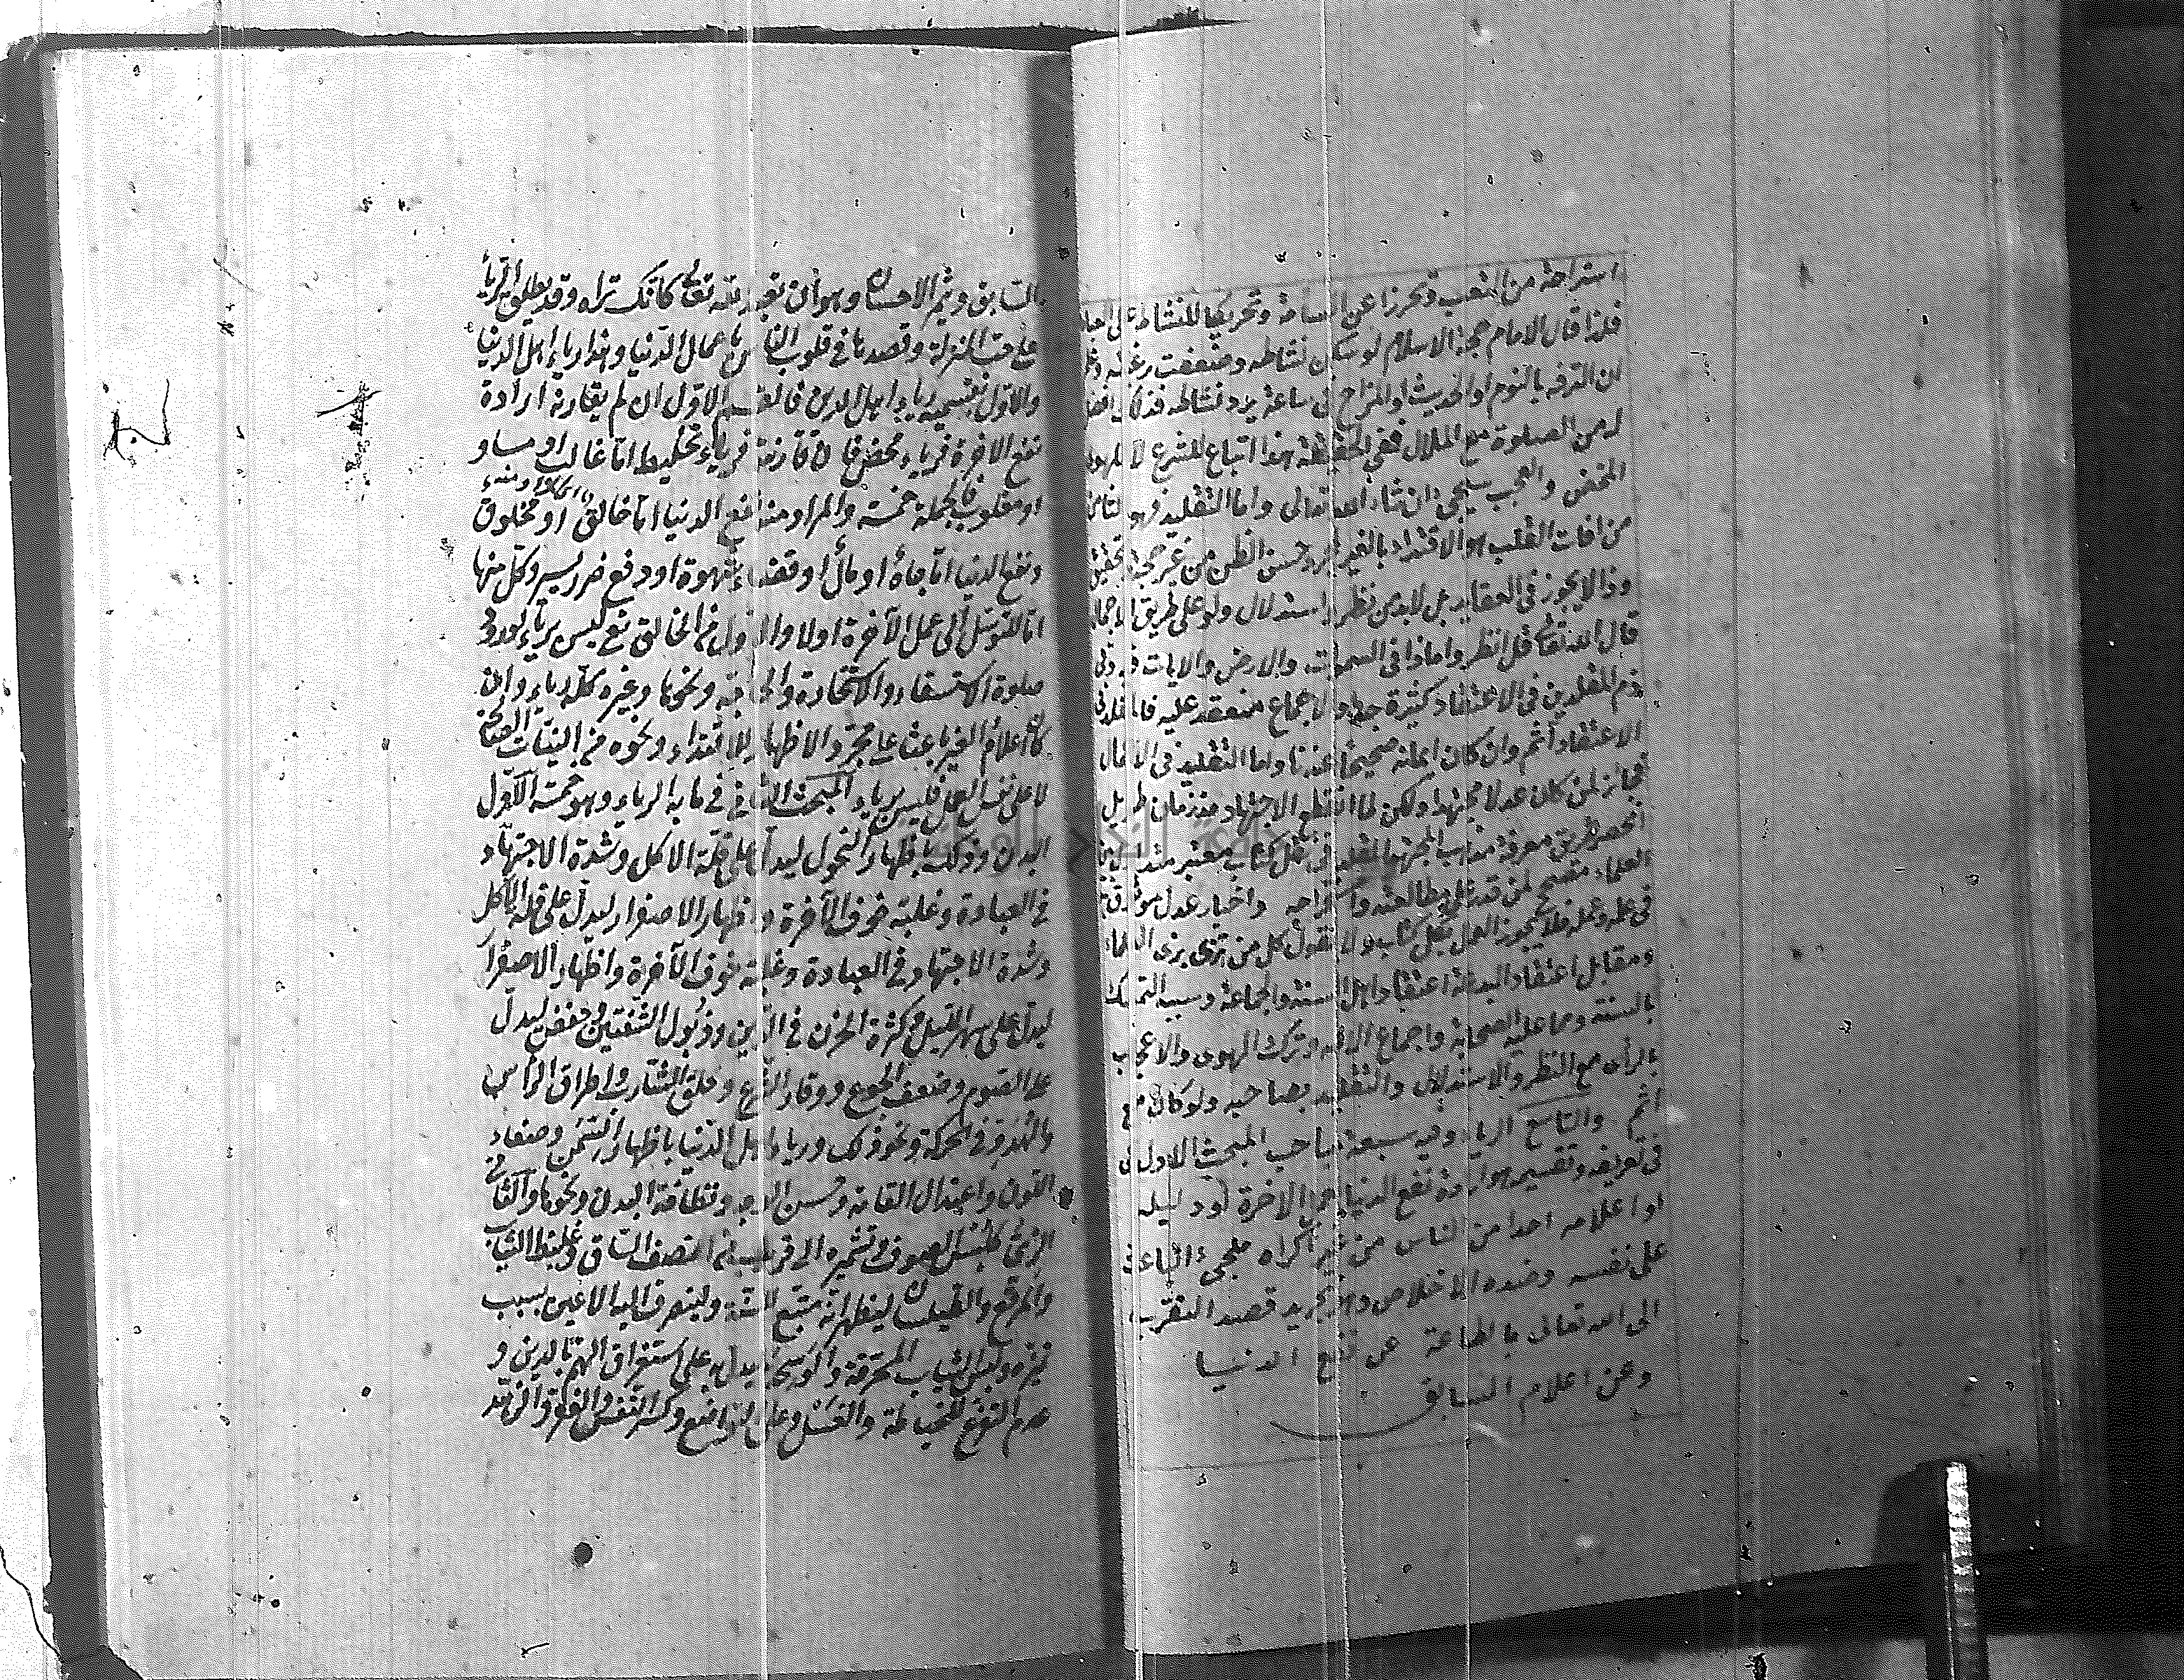 استراحة من التعب وتحرزا عن السآمة وتحريكا للنشاط على العبادة
فلذا قال الامام حجة الاسلام لو سكن نشاطه وضعفت رغبته وعلم
ان الترفه بالنوم او الحديث او المزاح فى ساعة يرد نشاطه فذلك افضل
له من الصلوة مع الملال ففى الحقيقة هذا اتباع للشرع لا للهوى
المحض والعجب سيجئ ان شاء الله تعالى واما التقليد فهو الثامن
من افات القلب هو الاقتداء بالغير بمجرد حسن الظن من غير حجة وتحقيق
وذا لا يجوز فى العقايد بل لابد من نظر واستدلال ولو على طريق الاجمال
قال الله تعالى قل انظروا ماذا فى السموات والارض والايات فى
ذم المقلدين فى الاعتقاد كثيرة جدا والاجماع منعقد عليه فالمقلد فى
الاعتقاد آثم وان كان ايمانه صحيحا عندنا واما التقليد فى الاعمال
فجائز لمن كان عدلا مجتهدا ولكن لما انقطع الاجتهاد منذ زمان طويل
انحصر طريق معرفة مذاهب المجتهد المقلد فى نقل كتاب معتبر متداول بين
العلماء مصحح لمن قدر على مطالعته واستخراجه واخبار عدل موثوق به
فى علمه وعمله فلا يجوز العمل بكل كتاب ولا بقول كل من تزى بزى العلماء
ومقابل اعتقاد البدعة اعتقاد اهل السنة والجماعة وسببه التمسك
بالسنة وما عليه الصحابة واجماع الامة وترك الهوى والاعجاب
بالرأى مع النظر والاستدلال والتقليد بصاحبه ولو كان مع
اثم والتاسع الرياء وفيه سبعة مباحث المبحث الاول فى
فى تعريفه وتقسيمه هو ارادة نفع الدنيا بعمل الاخرة او دليله
او اعلامه احدا من الناس من غير اكراه ملجئ الباعث
على نفسه وضده الاخلاص وهو تجريد قصد التقرب
الى الله تعالى بالطاعة عن نفع الدنيا
وعن اعلام السابق
السابق ويثم الاحسان وهو ان تعبد الله تعالى كانك تراه وقد يطلق الرياء
على حب المنزلة وقصدها فى قلوب الناس باعمال الدنيا وهذا رياء اهل الدنيا
والاول بقسميه رياء اهل الدين فالقسم الاول ان لم يقارنه ارادة
نفع الاخرة فرياء محض فان قارنته فرياء تخليط اما غالب او مساو
او مغلوب فالجملة خمسة والمراد منه نفع الدنيا اما خالق او مخلوق
ونفع الدنيا اما جاه او مال او قضاء شهوة او دفع ضرر يسير وكل منها
اما للتوسل الى عمل الآخرة اولا والاول من الخالق تع ليس برياء لورود
صلوة الاستسقاء والاستخارة والحاجة ونحوها وغيره كله رياء وان
كان اعلام الغير باعثا على مجرد الاظهار للاقتداء ونحوه من النيات الصالحة
لا على نفس العمل فليس برياء المبحث الثانى فى ما به الرياء وهو خمسة الاول
البدن وذلك باظهار النحول ليدل على قلة الاكل وشدة الاجتهاد
فى العبادة وغلبة خوف الآخرة واظهار الاصفرار ليدل على قلة الاكل
وشدة الاجتهاد فى العبادة وغلبة خوف الآخرة واظهار الاصفرار
ليدل على سهر الليل وكثرة الحزن فى الدين وذبول الشفتين وخفض ليدل
على الصوم وضعف الجوع ووقار الشرع وحلق الشارب واطراق الرأس
والهدو فى الحركة ونحو ذلك ورياء اهل الدنيا باظهار السمن وصفاء
اللون واعتدال القامة وحسن الوجه ونظافة البدن ونحوها والثانى
الزى كلبس الصوف وتشميره الى قريب من نصف الساق وغليظ الثياب
والمرقع والطيلسان ليظهر انه متبع السنة ولينصرف اليه الاعين بسبب
تميزه ولبس الثياب المخرقة والوسخة ليدل به على استغراق الهم بالدين و
عدم التفرغ للخياطة والغسل وعلى التواضع وكسر النفس والفقر والزهد